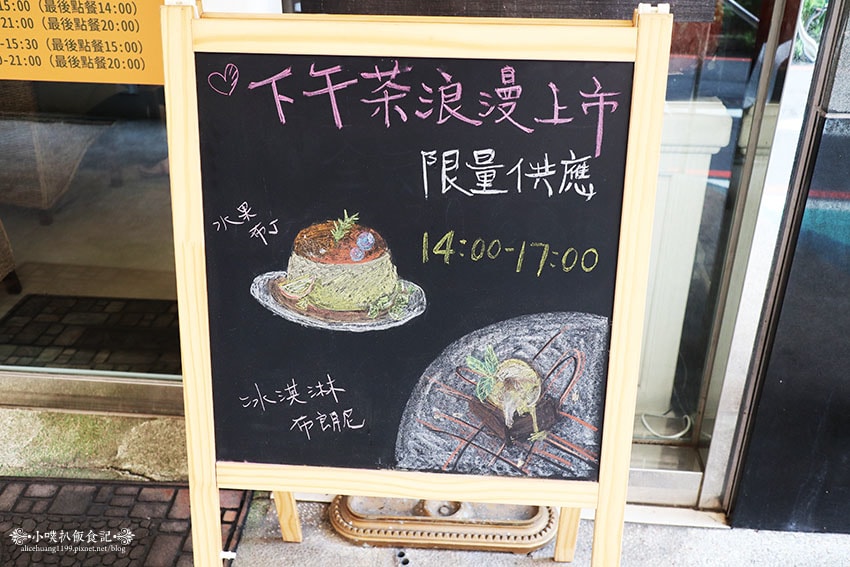 15:00（最後點餐14:00）
21:00（最後點餐20:00）
-15:30（最後點餐15:00）
-21:00（最後點餐20:00）
下午茶浪漫上市
限量供應
水果
布丁
14:00-17:00
冰淇淋
布朗尼
小噗扒飯食記
alicehuang1199.pixnet.net/blog